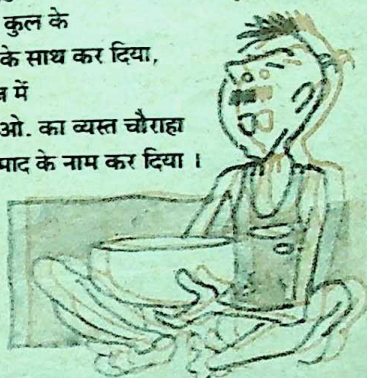 कुल के
के साथ कर दिया,
में
ओ. का व्यस्त चौराहा
के नाम कर दिया ।